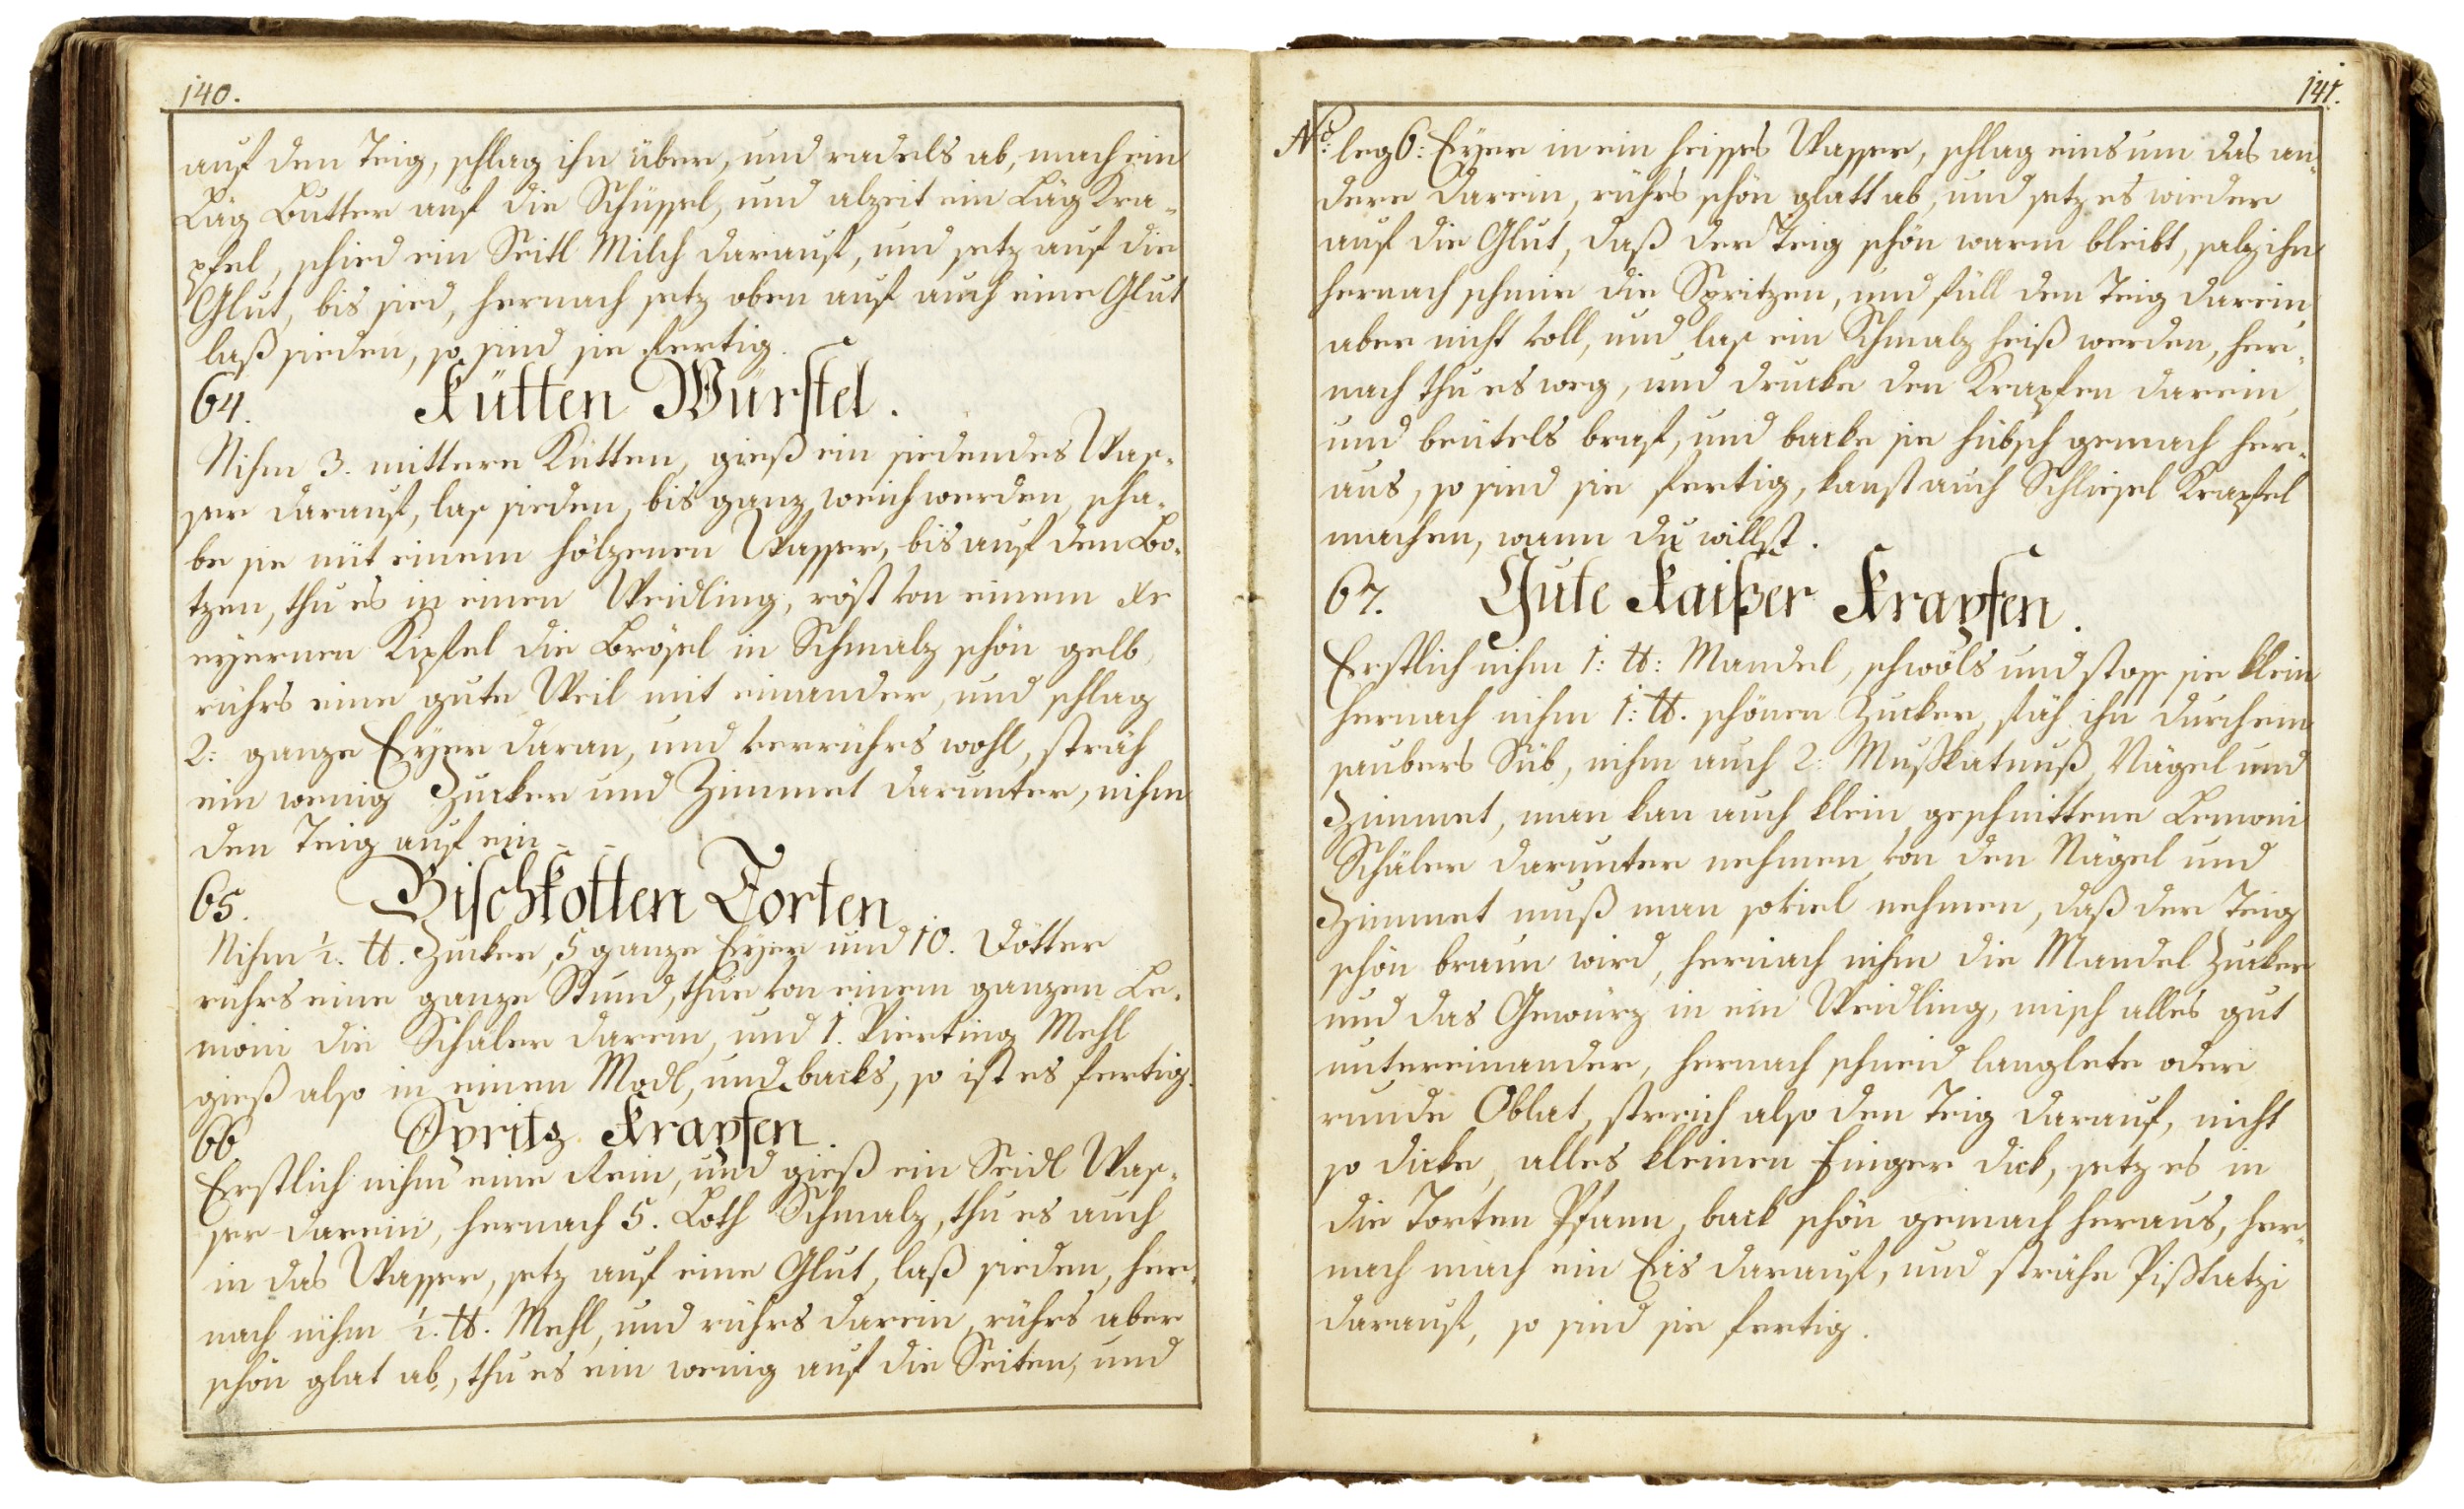 140.
auf den Teig, schlag ihn über, und radels ab, mach ein
Läg Butter auf die Schüssel, und alzeit ein Läg Kra-
pfel, schied ein Seitl Milch darauf, und setz auf die
Glut, bis sied, hernach setz oben auf auch eine Glut
laß sieden, so sind sie fertig.
64. Kütten Würstel.
Nihm 3. mittere Kütten, gieß ein siedendes Was-
ser darauf, las sieden, bis ganz weich werden, scha-
be sie mit einem hölzenen Messer, bis auf den Bo-
tzen, thu es in einen Weidling, röst von einem
eyernen Kipfel die Brösel in Schmalz schön gelb,
rührs eine gute Weil mit einander, und schlag
2: ganze Eyer daran, und verrührs wohl, sträh
ein wenig Zucker und Zimmet darunter, nihm
den Teig auf ein - -
65. Bischkotten Torten
Nihm ½. ℔. Zucker, 5 ganze Eyer und 10. Dötter
rührs eine ganze Stund, thue von einem ganzen Le-
moni die Schäler darein, und 1. Vierting Mehl
gieß also in einen Modl, und backs, so ist es fertig.
66 Spritz Krapfen.
Erstlich nihm eine Rein, und gieß ein Seidl Was-
ser darein, hernach 5. Loth Schmalz, thu es auch
in das Wasser, setz auf eine Glut, laß sieden, her-
nach nihm ½. ℔. Mehl, und rührs darein, rührs aber
schön glat ab, thu es ein wenig auf die Seiten, und
141.
No: leg 6: Eyer in ein heisses Wasser, schlag eins um das an-
dere darein, rührs schön glatt ab, und setz es wieder
auf die Glut, daß der Teig schön warm bleibt, salz ihn
hernach schmir die Spritzen, und füll den Teig darein
aber nicht voll, und las ein Schmalz heiß werden, her-
nach thu es weg, und drucke den Krapfen darein,
und beutels braf, und backe sie hübsch gemach her-
aus, so sind sie fertig, kanst auch Schliesel Krapfel
machen, wann du willst.
67. Gute Kaißer Krapfen.
Erstlich nihm 1: ℔: Mandel, schwöls und stoss sie klein
hernach nihm 1: ℔. schönen Zucker, stäh ihn durch ein
saubers Süb, nihm auch 2: Mußkatnuß, Nägel und
Zimmet, man kan auch klein geschnittene Lemoni
Schäler darunter nehmen, von den Nägel und
Zimmet muß man soviel nehmen, daß der Teig
schön braun wird, hernach nihm die Mandel Zucker
und das Gewürz in ein Weidling, misch alles gut
untereinander, hernach schneid langlete oder
runde Oblat, streich also den Teig darauf, nicht
so dicke, alles kleinen Finger dick, setz es in
die Torten Pfann, back schön gemach heraus, her-
nach mach ein Eis darauf, und strähe Pißtatzi
darauf, so sind sie fertig.